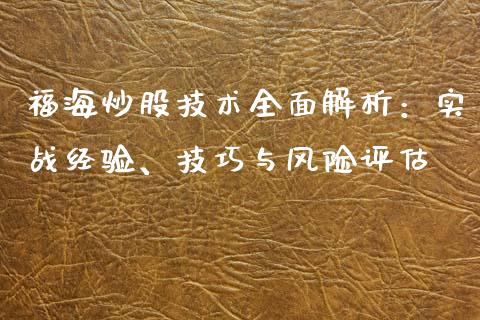 福海炒股技术全面解析：实
战经验、技巧与风险评估